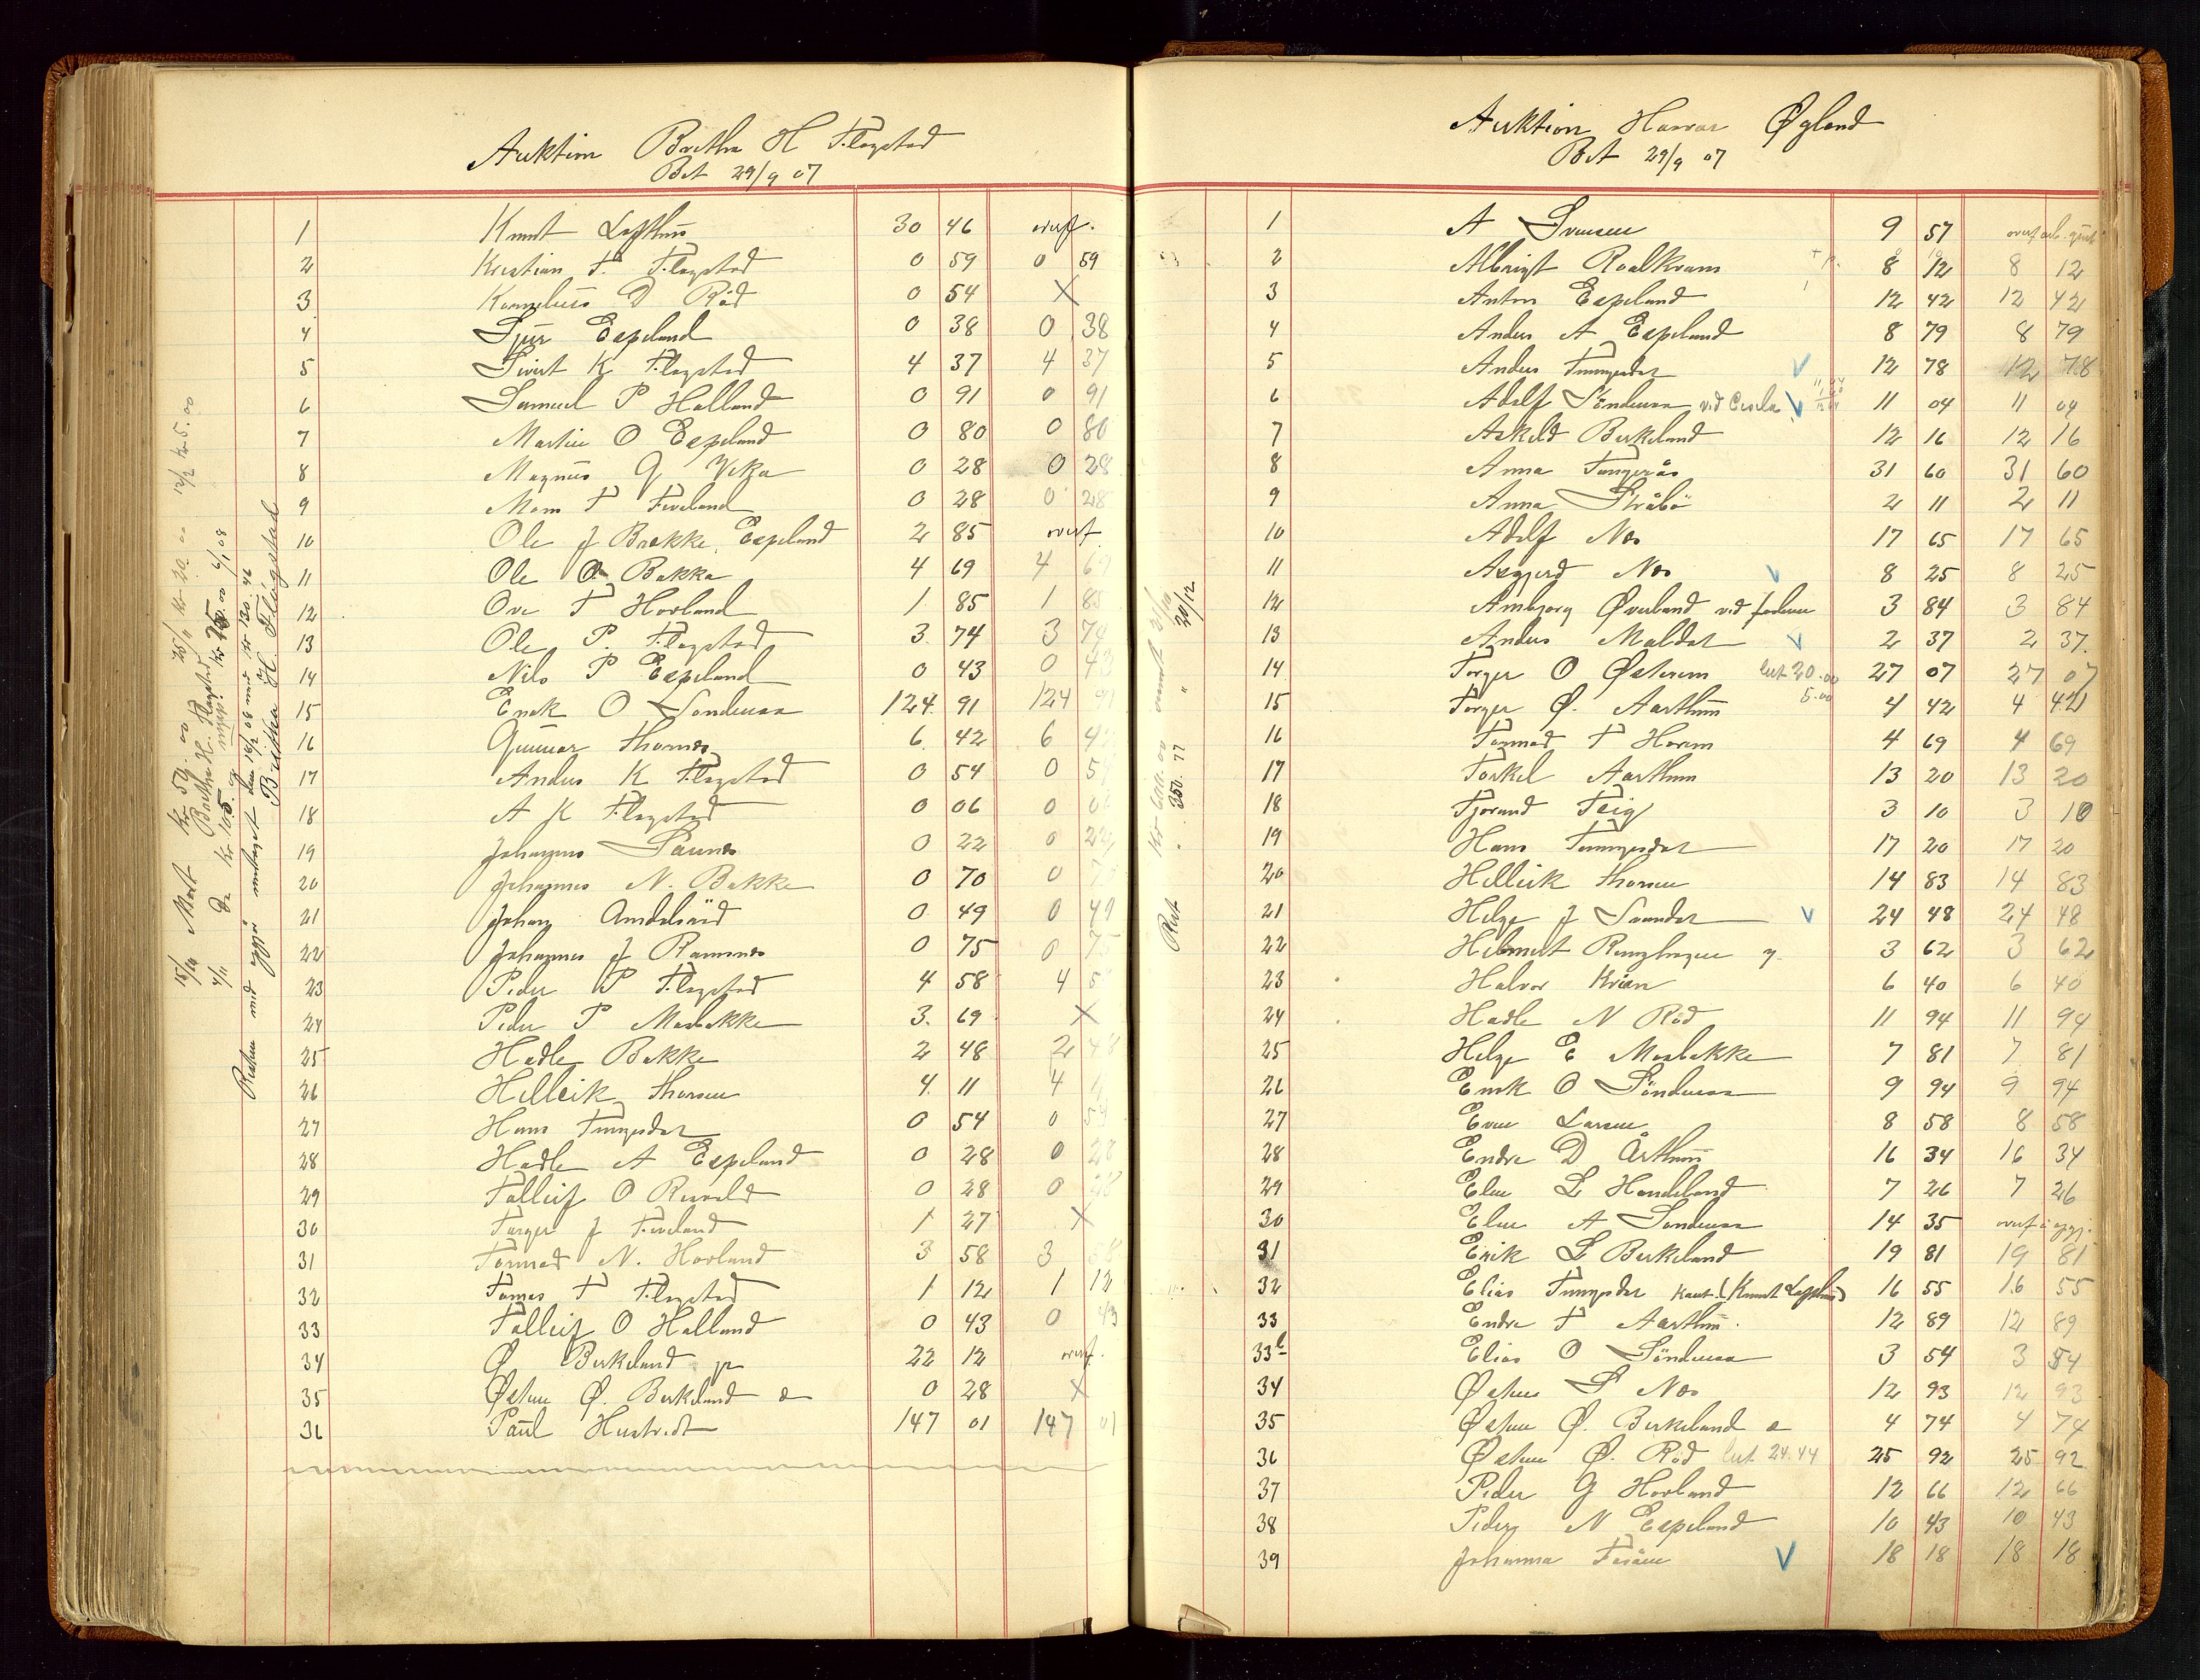 Auktion Berthe H Flogstad
Bet 29/9 07
1 Knut Lofthus 30 46 overf.
2 Kristian T. Flogstad 0 59 0 59
3 Kornelius D Röd 0 54 X
4 Sjur Espeland 0 38 0 38
5 Sivert K Flogstad 4 37 4 37
6 Samuel P Halland 0 91 0 91
7 Martin O Espeland 0 80 0 80
8 Magnus G Veka 0 28 0 28
9 Mons T Fiveland 0 28 0 28
10 Ole J Brekke, Espeland 2 85 overf
11 Ole O Bakka 4 69 4 69
12 Ove T Hovland 1 85 1 85
13 Ole P. Flogstad 3 74 3 74
14 Nils P Espeland 0 43 0 43
15 Enok O Sönderaa 124 91 124 91
16 Gunnar Thornes 6 42 6 42
17 Anders K Flogstad 0 54 0 54
18 A K Flogstad 0 06 0 06
19 Johannes 0 22 0 22
20 Johannes N. Bakke 0 70 0 70
21 Johan 0 49 0 49
22 Johannes J Ramsnes 0 75 0 75
23 Peder P Flogstad 4 58 4 58
24 Peder P Mosbakke 3 69 X
25 Hadle Bakke 2 48 2 48
26 Helleik Thorsen 4 11 4 11
27 Hans Tungesdal 0 54 0 54
28 Hadle A Espeland 0 28 0 28
29 Tolleif O 0 28 0 28
30 Torger J Fiveland 1 27 X
31 Tormod N. Hovland 3 58 3 58
32 Tomas T Flogstad 1 12 1 12
33 Tolleif O Halland 0 43 0 43
34 Ø Birkeland jr 22 12 overf.
35 Østen Ø. Birkeland 0 28 X
36 Paul Hustvedt 147 01 147 01
15/10 Mort Kr 59.00 25/11 Kr 20.00 12/12 Kr 5.00
Berthe H. Flogstad
4/11 Do Kr 15.00 Kr 25.00 4/1 08
Resten med opgjör mottaget den 18/2 08 med Kr 130.46
Bertha H. Flogstad
Auktion Havar Øgland
Bet 29/9 07
1 A Svensen 9 57 overf
2 Albrigt Roalkvam 8 12 8 12
3 Anton Espeland 12 42 12 42
4 Anders A Espeland 8 79 8 79
5 Anders Tungesdal V 12 78 12 78
6 Adolf Sönderaa ved V 11 04 11 04
7 Askeld Birkeland 12 16 12 16
8 Anna Tungeraas 31 60 31 60
9 Anna Stråbö 2 11 2 11
10 Adolf Nes 17 65 17 65
11 Asgjerd Nes V 8 25 8 25
12 Ambjorg Øverland ved faderen 3 84 3 84
13 Anders Maldal V 2 37 2 37.
14 Torger O Østrem bet 20.00 27 07 27 07
15 Torger Ø. Aarthun 5.00 4 42 4 42
16 Tormod T Horem 4 69 4 69
17 Torkel Aarthun 13 20 13 20
18 Tjorand Teig 3 10 3 10
19 Hans Tungesdal 17 20 17 20
20 Helleik Thorsen 14 83 14 83
21 Helge J Svandal V 24 48 24 48
22 Helmert Ringhagen 3 62 3 62
23 Halvor Kvian 6 40 6 40
24 Hadle N Röd 11 94 11 94
25 Helge E Mosbakke 7 81 7 81
26 Enok O Sönderaa 9 94 9 94
27 Even Larsen 8 58 8 58
28 Endre D Arthun 16 34 16 34
29 Elen L Handeland 7 26 7 26
30 Elen A Sönderaa 14 35 overf
31 Erik L Birkeland 19 81 19 81
32 Elias Tungesdal Kaut. (Knut Lofthus) 16 55 16 55
33 Endre T Aarthun. 12 89 12 89
33b Elias O Sönderaa 3 54 3 54
34 Østen S Nes 12 93 12 93
35 Østen Ø. Birkeland 4 74 4 74
36 Østen Ø. Röd bet 24.44 25 92 25 92
37 Peder G Hovland 12 66 12 66
38 Peder N Espeland 10 43 10 43
39 Johanna V 18 18 18 18
Rest " 350.77 " 20/12